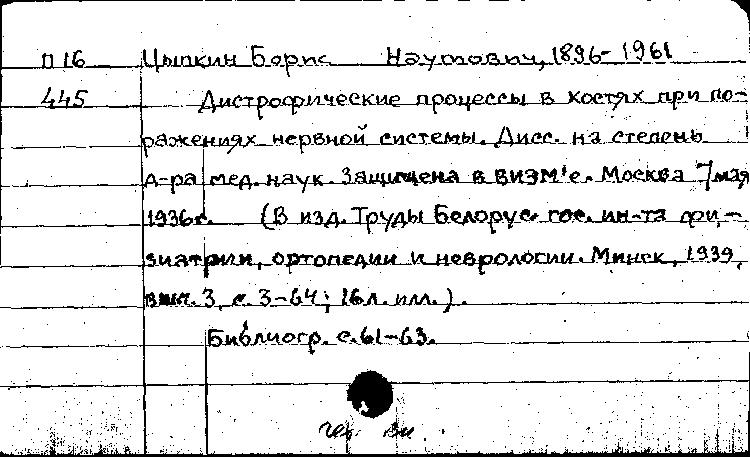 П 16 Цыпкин Борис Наумович, 1896-1961
445 Дистрофические процессы в костях при по-
ражениях нервной системы. Дисс. на степень
д-ра мед. наук. Защищена в ВИЭМ'е. Москва 7 мая
1936 г. (В изд. Труды Белорус. гос. ин-та фи-
зиатрии, ортопедии и неврологии. Минск, 1939,
вып. 3, с. 3-64; 16 л. илл.).
Библиогр. с. 61-63.